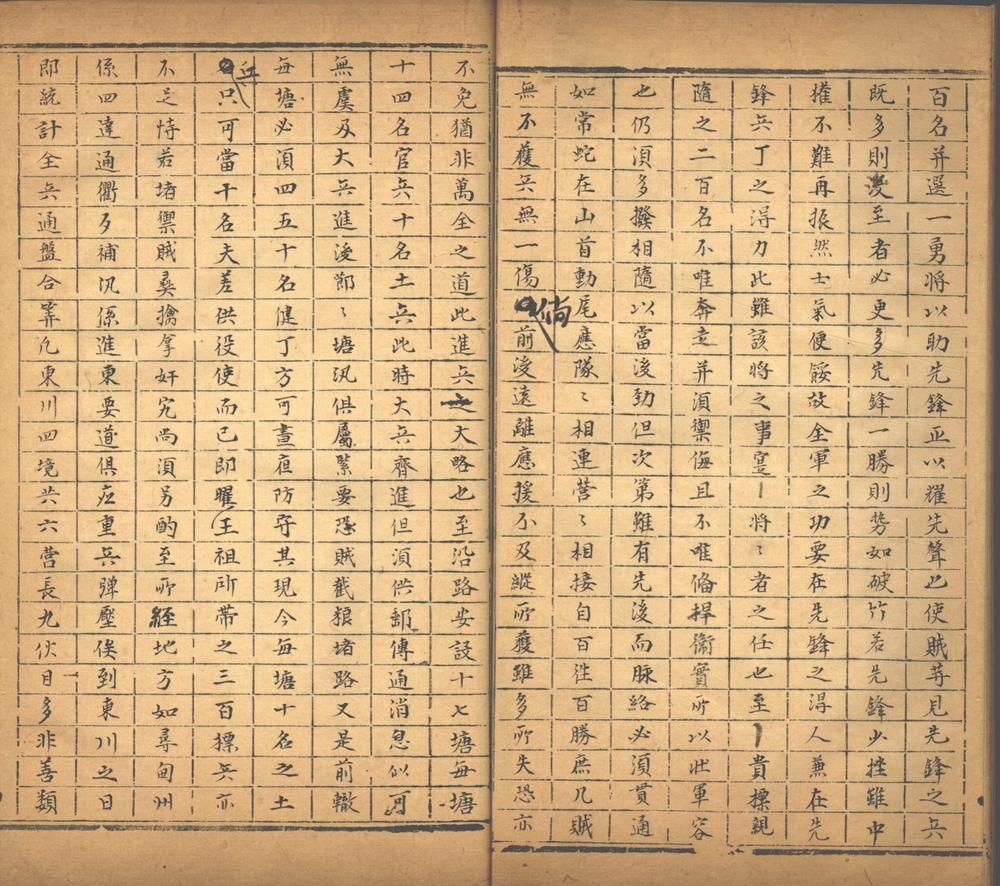 百名并選一勇將以助先鋒正以耀先聲也使賊莽見先鋒之兵
既多則後至者必更多先鋒一勝則势如破竹若先鋒少挫雖中
權不難再振然士氣便餒故全軍之功要在先鋒之得人兼在先
鋒兵丁之得力此雖該將之事寔一將將者之任也至貴標親
隨之二百名不唯奔走并須禦侮且不唯俻捍衛實所以壯軍容
也仍須多撥相隨以當後劲但次第雖有先後而脉絡必須貫通
如常蛇在山首動尾應隊〻相連营〻相接自百徃百勝庶几賊
無不獲兵無一傷倘前後遠離應援不及縱所獲雖多所失恐亦
不免猶非萬全之道此進兵大略也至沿路安設十七塘每塘
十四名官兵十名土兵此時大兵齊進但須供郵傳通消息似可
無虞及大兵進後郎〻塘汛俱屬緊要恐賊截粮堵路又是前轍
每塘必須四五十名健丁方可晝夜防守其現今每塘十名之土
兵只可當十名夫差供役使而已即曜王祖所帶之三百標兵亦
不足恃若堵禦賊彝擒拿奸宄尚須另酌至所經地方如尋甸州
係四達通衢歹補汛係進東要道俱应重兵弹壓俟到東川之日
即統計全兵通盤合筭凢東川四境共六营長九伙目多非善類